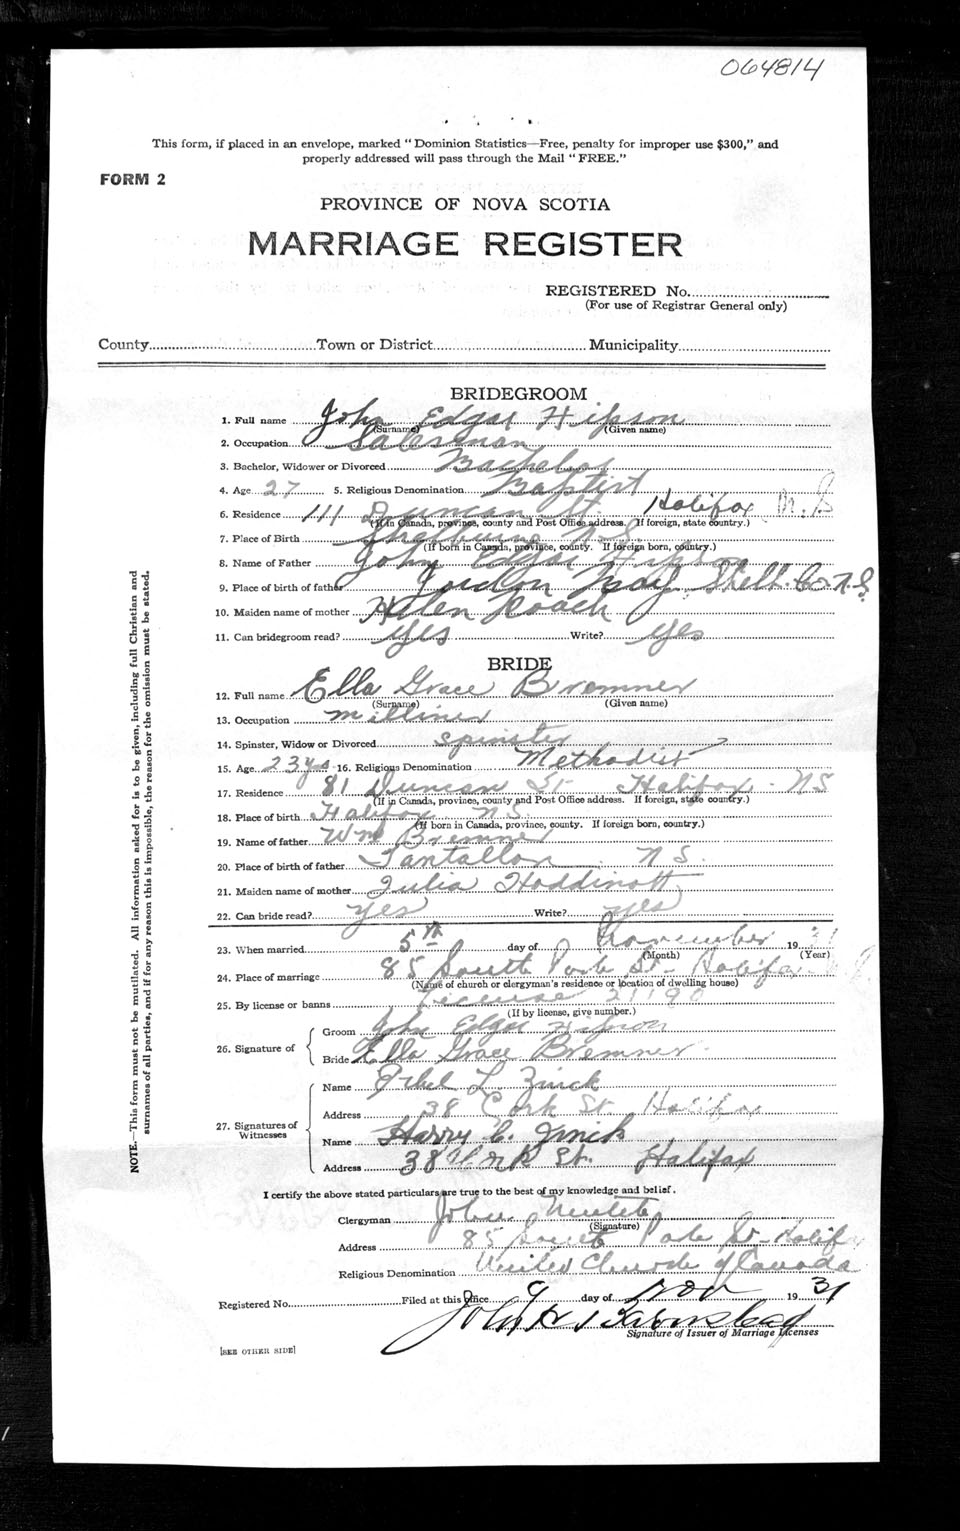 064814
This form, if placed in an envelope, marked "Dominion Statistics—Free, penalty for improper use $300," and
properly addressed will pass through the Mail "FREE."
FORM 2
PROVINCE OF NOVA SCOTIA
MARRIAGE REGISTER
REGISTERED No.
(For use of Registrar General only)
County Town or District Municipality
BRIDEGROOM
1. Full name John Edgar Hipson
(Surname) (Given name)
2. Occupation Salesman
3. Bachelor, Widower or Divorced Bachelor
4. Age 27 5. Religious Denomination Baptist
6. Residence 111 Duncan St. Halifax N.S
(If in Canada, province, county and Post Office address. If foreign, state country.)
7. Place of Birth Shelburne N.S.
(If born in Canada, province, county. If foreign born, country.)
8. Name of Father John Edgar Hipson
9. Place of birth of father Shelb. Co. N.S.
10. Maiden name of mother Helen Roach
11. Can bridegroom read? Yes Write? Yes
BRIDE
12. Full name Ella Grace Bremner
(Surname) (Given name)
13. Occupation milliner
14. Spinster, Widow or Divorced spinster
15. Age 23 yrs 16. Religious Denomination Methodist
17. Residence 81 Duncan St Halifax - NS
(If in Canada, province, county and Post Office address. If foreign, state country.)
18. Place of birth Halifax NS.
(If born in Canada, province, county. If foreign born, country.)
19. Name of father Wm Bremner
20. Place of birth of father Tantallon N S.
21. Maiden name of mother Julia Hoddinott
22. Can bride read? yes Write? yes
23. When married 5th day of November 1931
(Month) (Year)
24. Place of marriage 85 South Park St - Halifax N.S.
(Name of church or clergyman's residence or location of dwelling house)
25. By license or banns License 21190
(If by license, give number.)
26. Signature of
Groom John Edgar Hipson
Bride Ella Grace Bremner
27. Signatures of
Witnesses
Name Ethel L. Zinck
Address 38 York St. Halifax
Name Harry C. Zinck
Address 38 York St. Halifax
I certify the above stated particulars are true to the best of my knowledge and belief.
Clergyman John
(Signature)
Address 85 South Park St - Halifax
Religious Denomination United Church of Canada
Registered No. Filed at this office 9 day of Nov 1931
John H. Barnstead
Signature of Issuer of Marriage Licenses
[SEE OTHER SIDE]
NOTE.—This form must not be mutilated. All information asked for is to be given, including full Christian and
surnames of all parties, and if for any reason this is impossible, the reason for the omission must be stated.